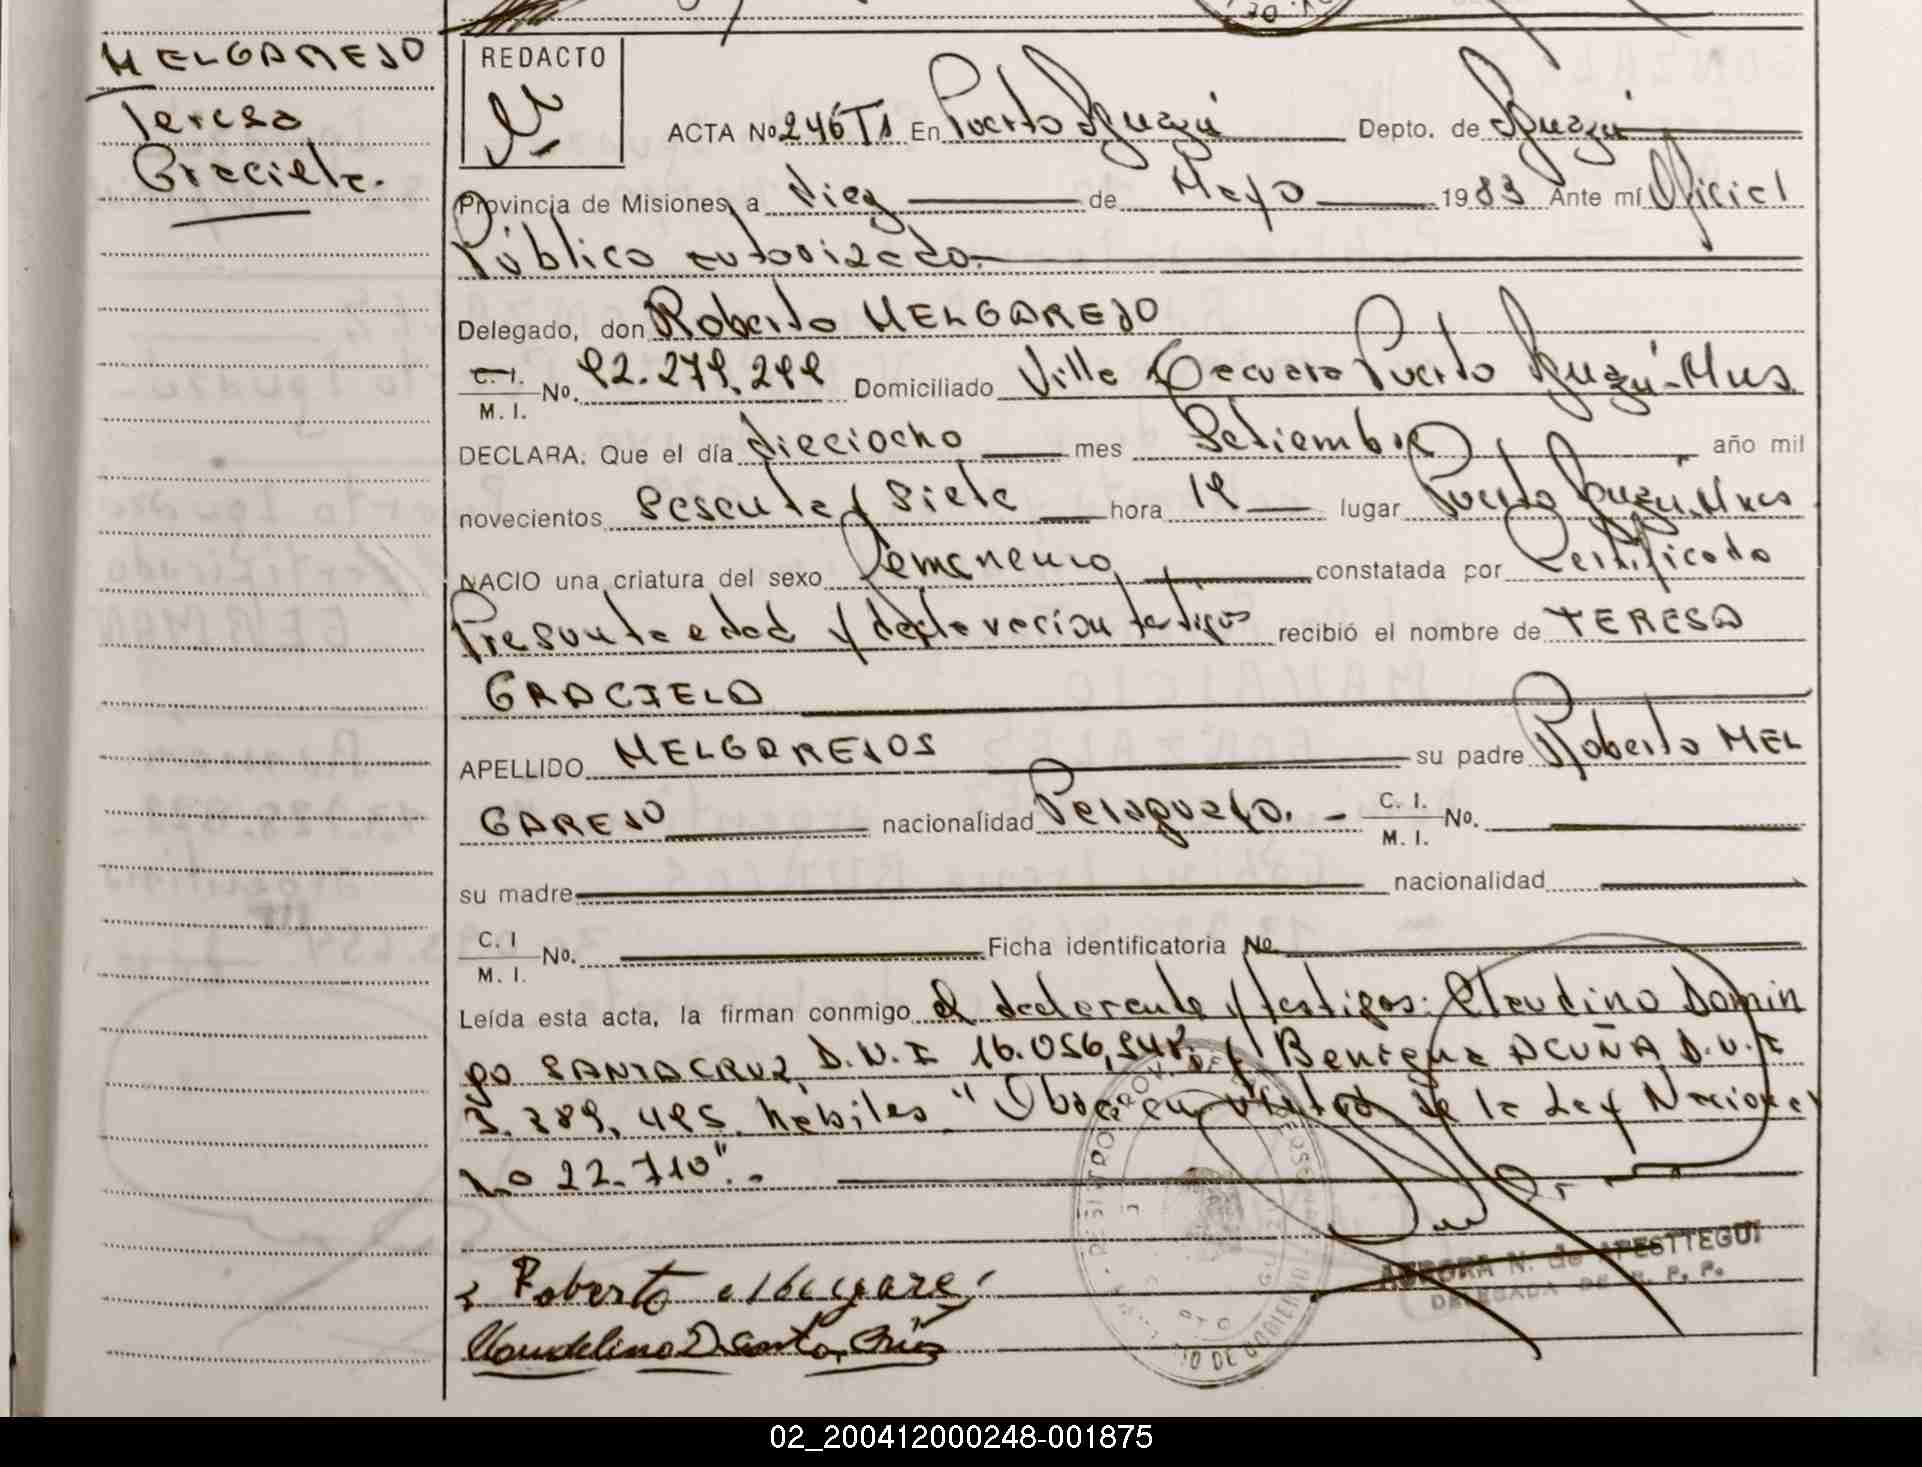 MELGAREJO
Teresa
Graciela.
REDACTO
ACTA No 246 T1 En Puerto Iguazú Depto. de Iguazú
Provincia de Misiones, a Diez de Mayo 1983 Ante mí Oficial
Público autorizado.
Delegado, don Roberto MELGAREJO
C. I.
M. I. No. 92.279.299 Domiciliado Villa Puerto Iguazú-Mnes
DECLARA: Que el día dieciocho mes Setiembre año mil
novecientos sesenta y siete hora 19 lugar Puerto Iguazú. Mnes
NACIO una criatura del sexo Femenenio constatada por Certificado
Presunta edad y declaracion testigos recibió el nombre de TERESA
GRACIELA
APELLIDO MELGAREJOS su padre Roberto MEL
GAREJO nacionalidad Paraguayo. - C. I.
M. I. No.
su madre nacionalidad
C. I
M. I. No. Ficha identificatoria No
Leída esta acta, la firman conmigo el declarante y testigos: Claudino Domin
go SANTACRUZ, D.N.I 16.056,948, y Benigna ACUÑA D.N.I
3.389,495 hábiles "Obra en virtud de la Ley Nacional
No 22.710".-
Roberto
AURORA N. de APESTTEGUI
DELEGADA DE R. P. P.
02_200412000248-001875